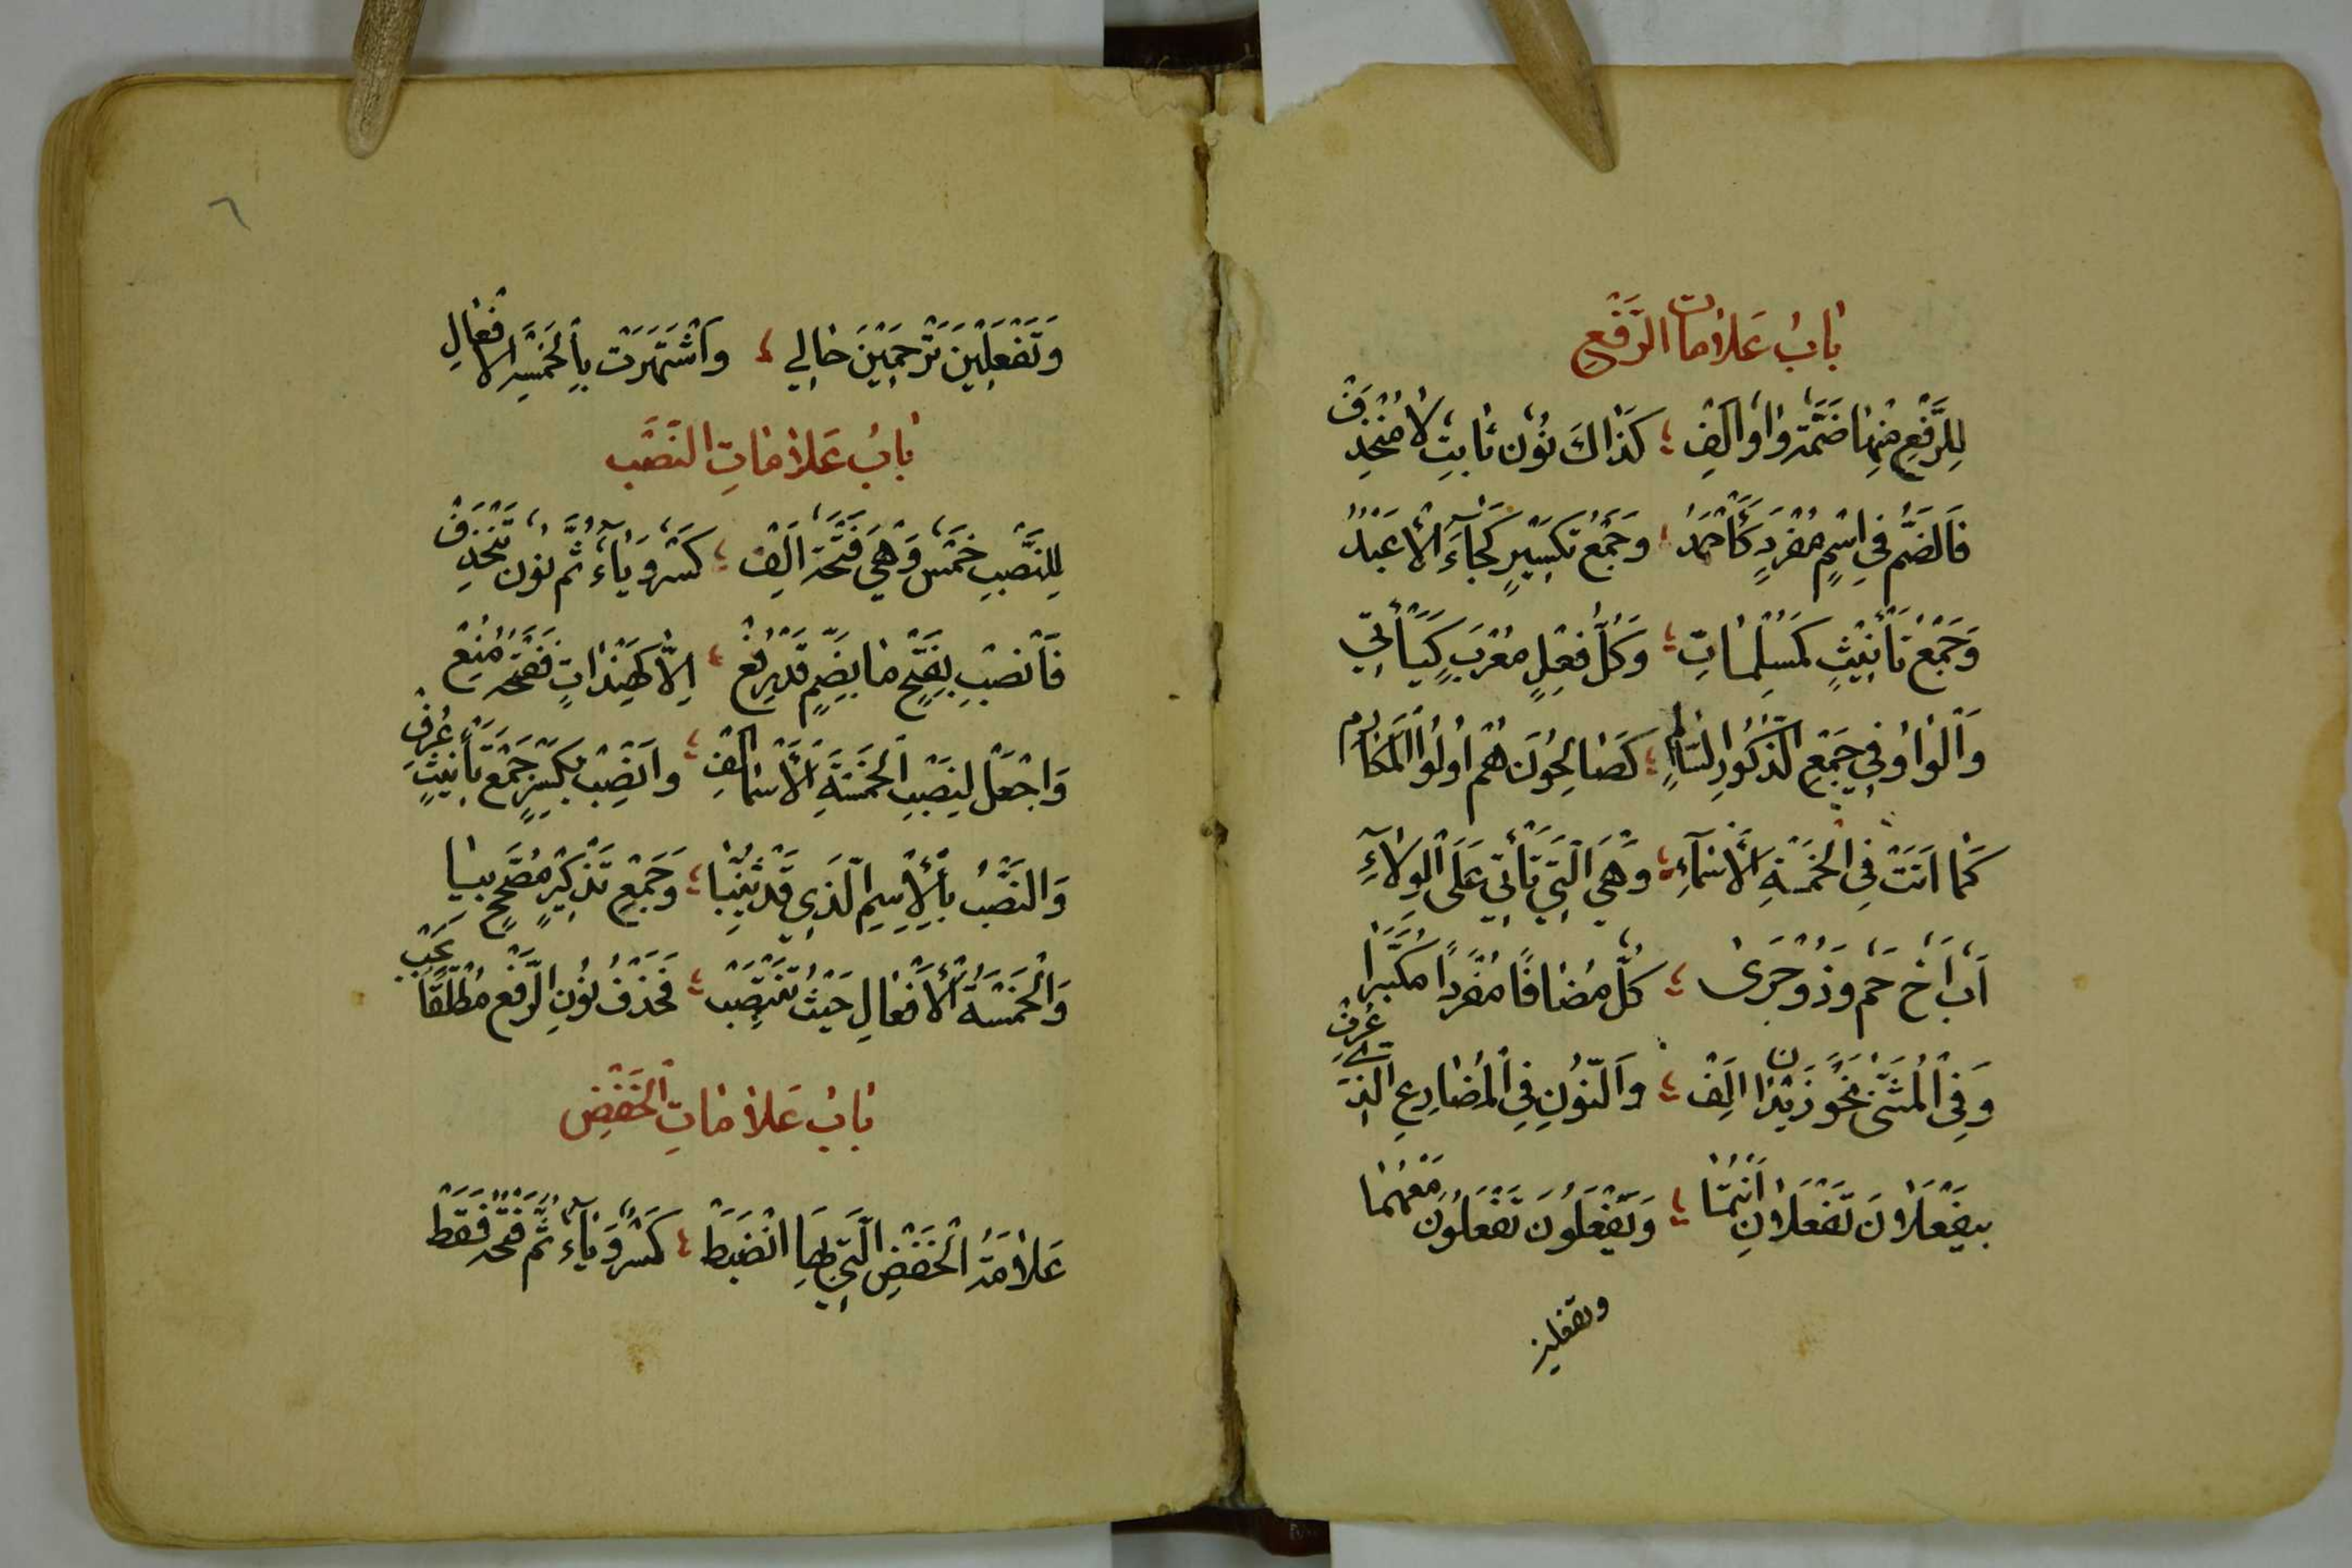 بَابُ عَلَامَات الرَّفْعِ
لِلرَّفْعِ مِنْهَا ضَمَّة وَاو اَلِفْ ؛ كَذَاكَ نُوْن ثَابِت لَا مُنْحَذِفْ
فَالضَّمُّ فِي اسْمٍ مُفْرَدٍ كَأَحْمَدُ ؛ وَجَمْعُ تَكْسِيْرٍ كَجَآءَ الْأَعْبُدُ
وَجَمْعُ تَأْنِيْثٍ كَمُسْلِمَاتِ ؛ وَكُلُّ فِعْلٍ مُعْرَبٍ كَيَأْتِي
وَالْوَاوُ فِي جَمْعِ الذُّكُوْرِ السَّالِمِ ؛ كَصَالِحُوْنَ هُمْ اُولُوا الْمَكَارِمِ
كَمَا اَتَتْ فِى الْخَمْسَةِ الْأَسْمَآءِ ؛ وَهْيَ الَّتِي تَأْتِي عَلَى الْوِلَآءِ
اَب اَخ حَم وَذُو جَرَى ؛ كُلٌّ مُضَافًا مُفْرَدًا مُكَبَّرَا
وَفِى الْمُثَنَّى نَحْوُ زَيْدَان اَلِفْ ؛ وَالنُّوْنِ فِى الْمُضَارِعِ الَّذِي عُرِفْ
بِيَفْعَلَانِ تَفْعَلَانِ اَنْتُمَا ؛ وَيَفْعَلُونَ تَفْعَلُونَ مَعْهُمَا
وتفعلين
٦
وَتَفْعَلِيْنَ تَرْحَمِيْنَ حَالِي ؛ وَاشْتَهَرَتْ بِالْخَمْسَةِ الْاَفْعَالِ
بَابُ عَلَامَاتِ النَّصْبِ
لِلنَّصْبِ خَمْس وَهْيَ فَتْحَة اَلِفْ ؛ كَسْر وَيَاء ثُمَّ نُوْن تَنْحَذِفْ
فَانْصِبْ بِفَتْحٍ مَا بِضَمٍّ قَدْ رُفِعْ ؛ اِلَّا كَهِنْدَاتٍ فَفَتْحُهُ مُنِعْ
وَاجْعَلْ لِنَصْبِ الْخَمْسَةِ الْأَسْمَا اَلِفْ ؛ وَانْصِبْ بِكَسْرٍ جَمْعَ تَأْنِيْثٍ عُرِفْ
وَالنَّصْبُ بِالْاِسْمِ الَّذِي قَدْ ثُنِّيَا ؛ وَجَمْعِ تَذْكِيْرٍ مُصَحَّحٍ بِيَا
وَالْخَمْسَةُ الْأَفْعَالِ حَيْثُ تَنْتَصِبْ ؛ فَحَذْفُ نُوْنِ الرَّفْعِ مُطْلَقًا يَجِبْ
بَابُ عَلَامَاتِ الْخَفْضِ
عَلَامَةُ الْخَفْضِ الَّتِي بِهَا انْضَبَطْ ؛ كَسْر وَيَآء ثُمَّ فَتْحَة فَقَطْ